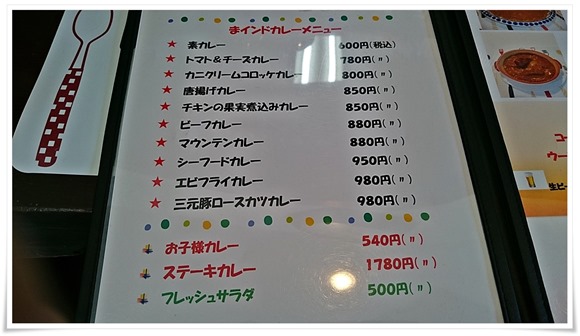 まインドカレーメニュー
★ 素カレー 600円(税込)
★ トマト＆チーズカレー 780円(〃)
★ カニクリームコロッケカレー 800円(〃)
★ 唐揚げカレー 850円(〃)
★ チキンの果実煮込みカレー 850円(〃)
★ ビーフカレー 880円(〃)
★ マウンテンカレー 880円(〃)
★ シーフードカレー 950円(〃)
★ エビフライカレー 980円(〃)
★ 三元豚ロースカツカレー 980円(〃)
お子様カレー 540円(〃)
ステーキカレー 1780円(〃)
フレッシュサラダ 500円(〃)
コー
ウー
生ビ